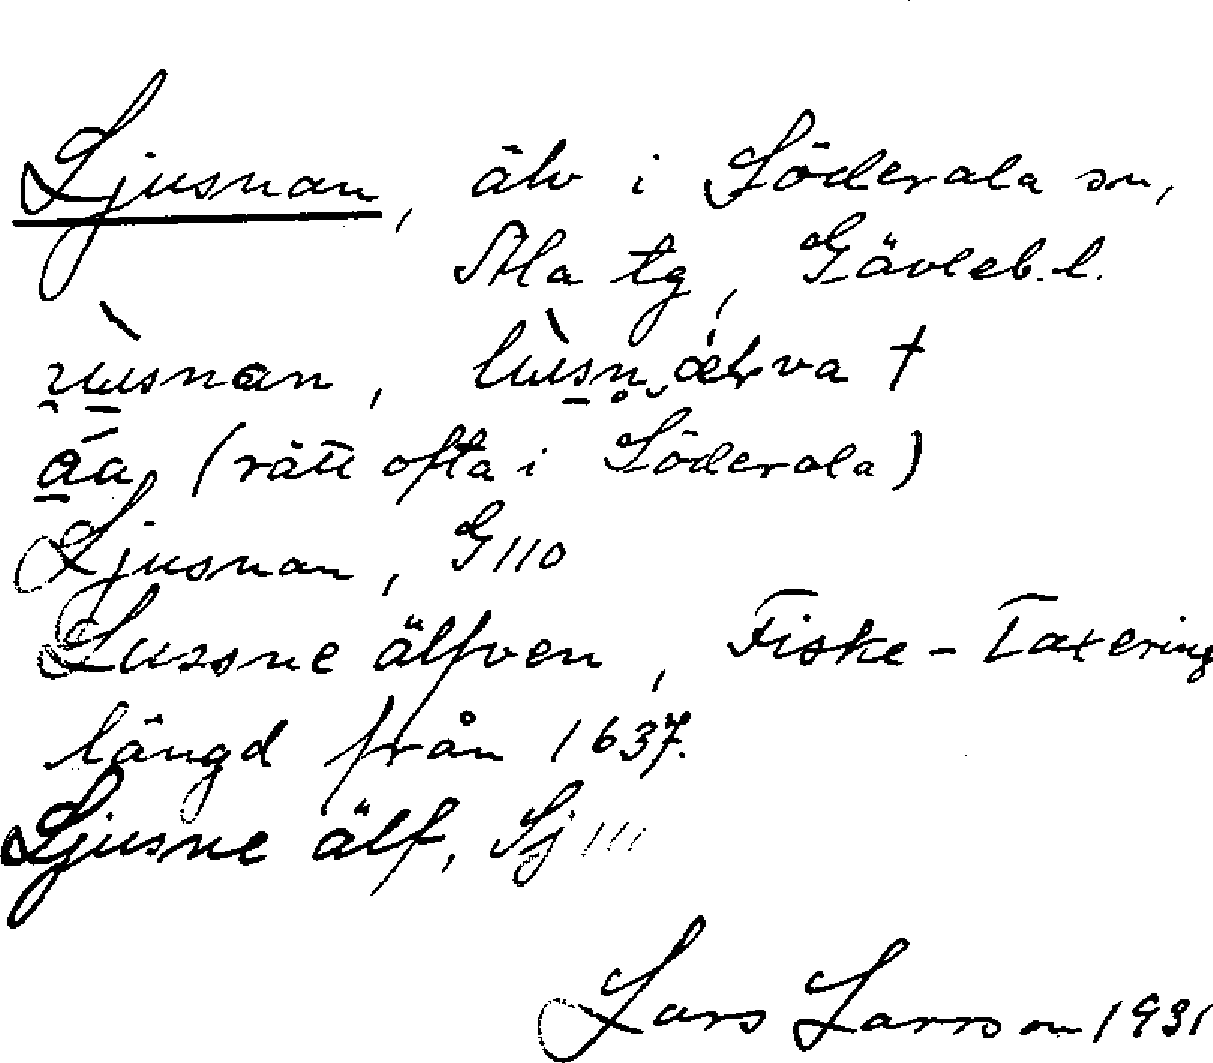 Ljusnan, älv i Söderala sn,
Ala tg, Gävleb. l.
älva †
(rätt ofta i Söderala)
Ljusnan, G 110
Lussne älfven, Fiske-Taxering
längd från 1637.
Ljusne älf, Sj 111
Lars Larsson 1931